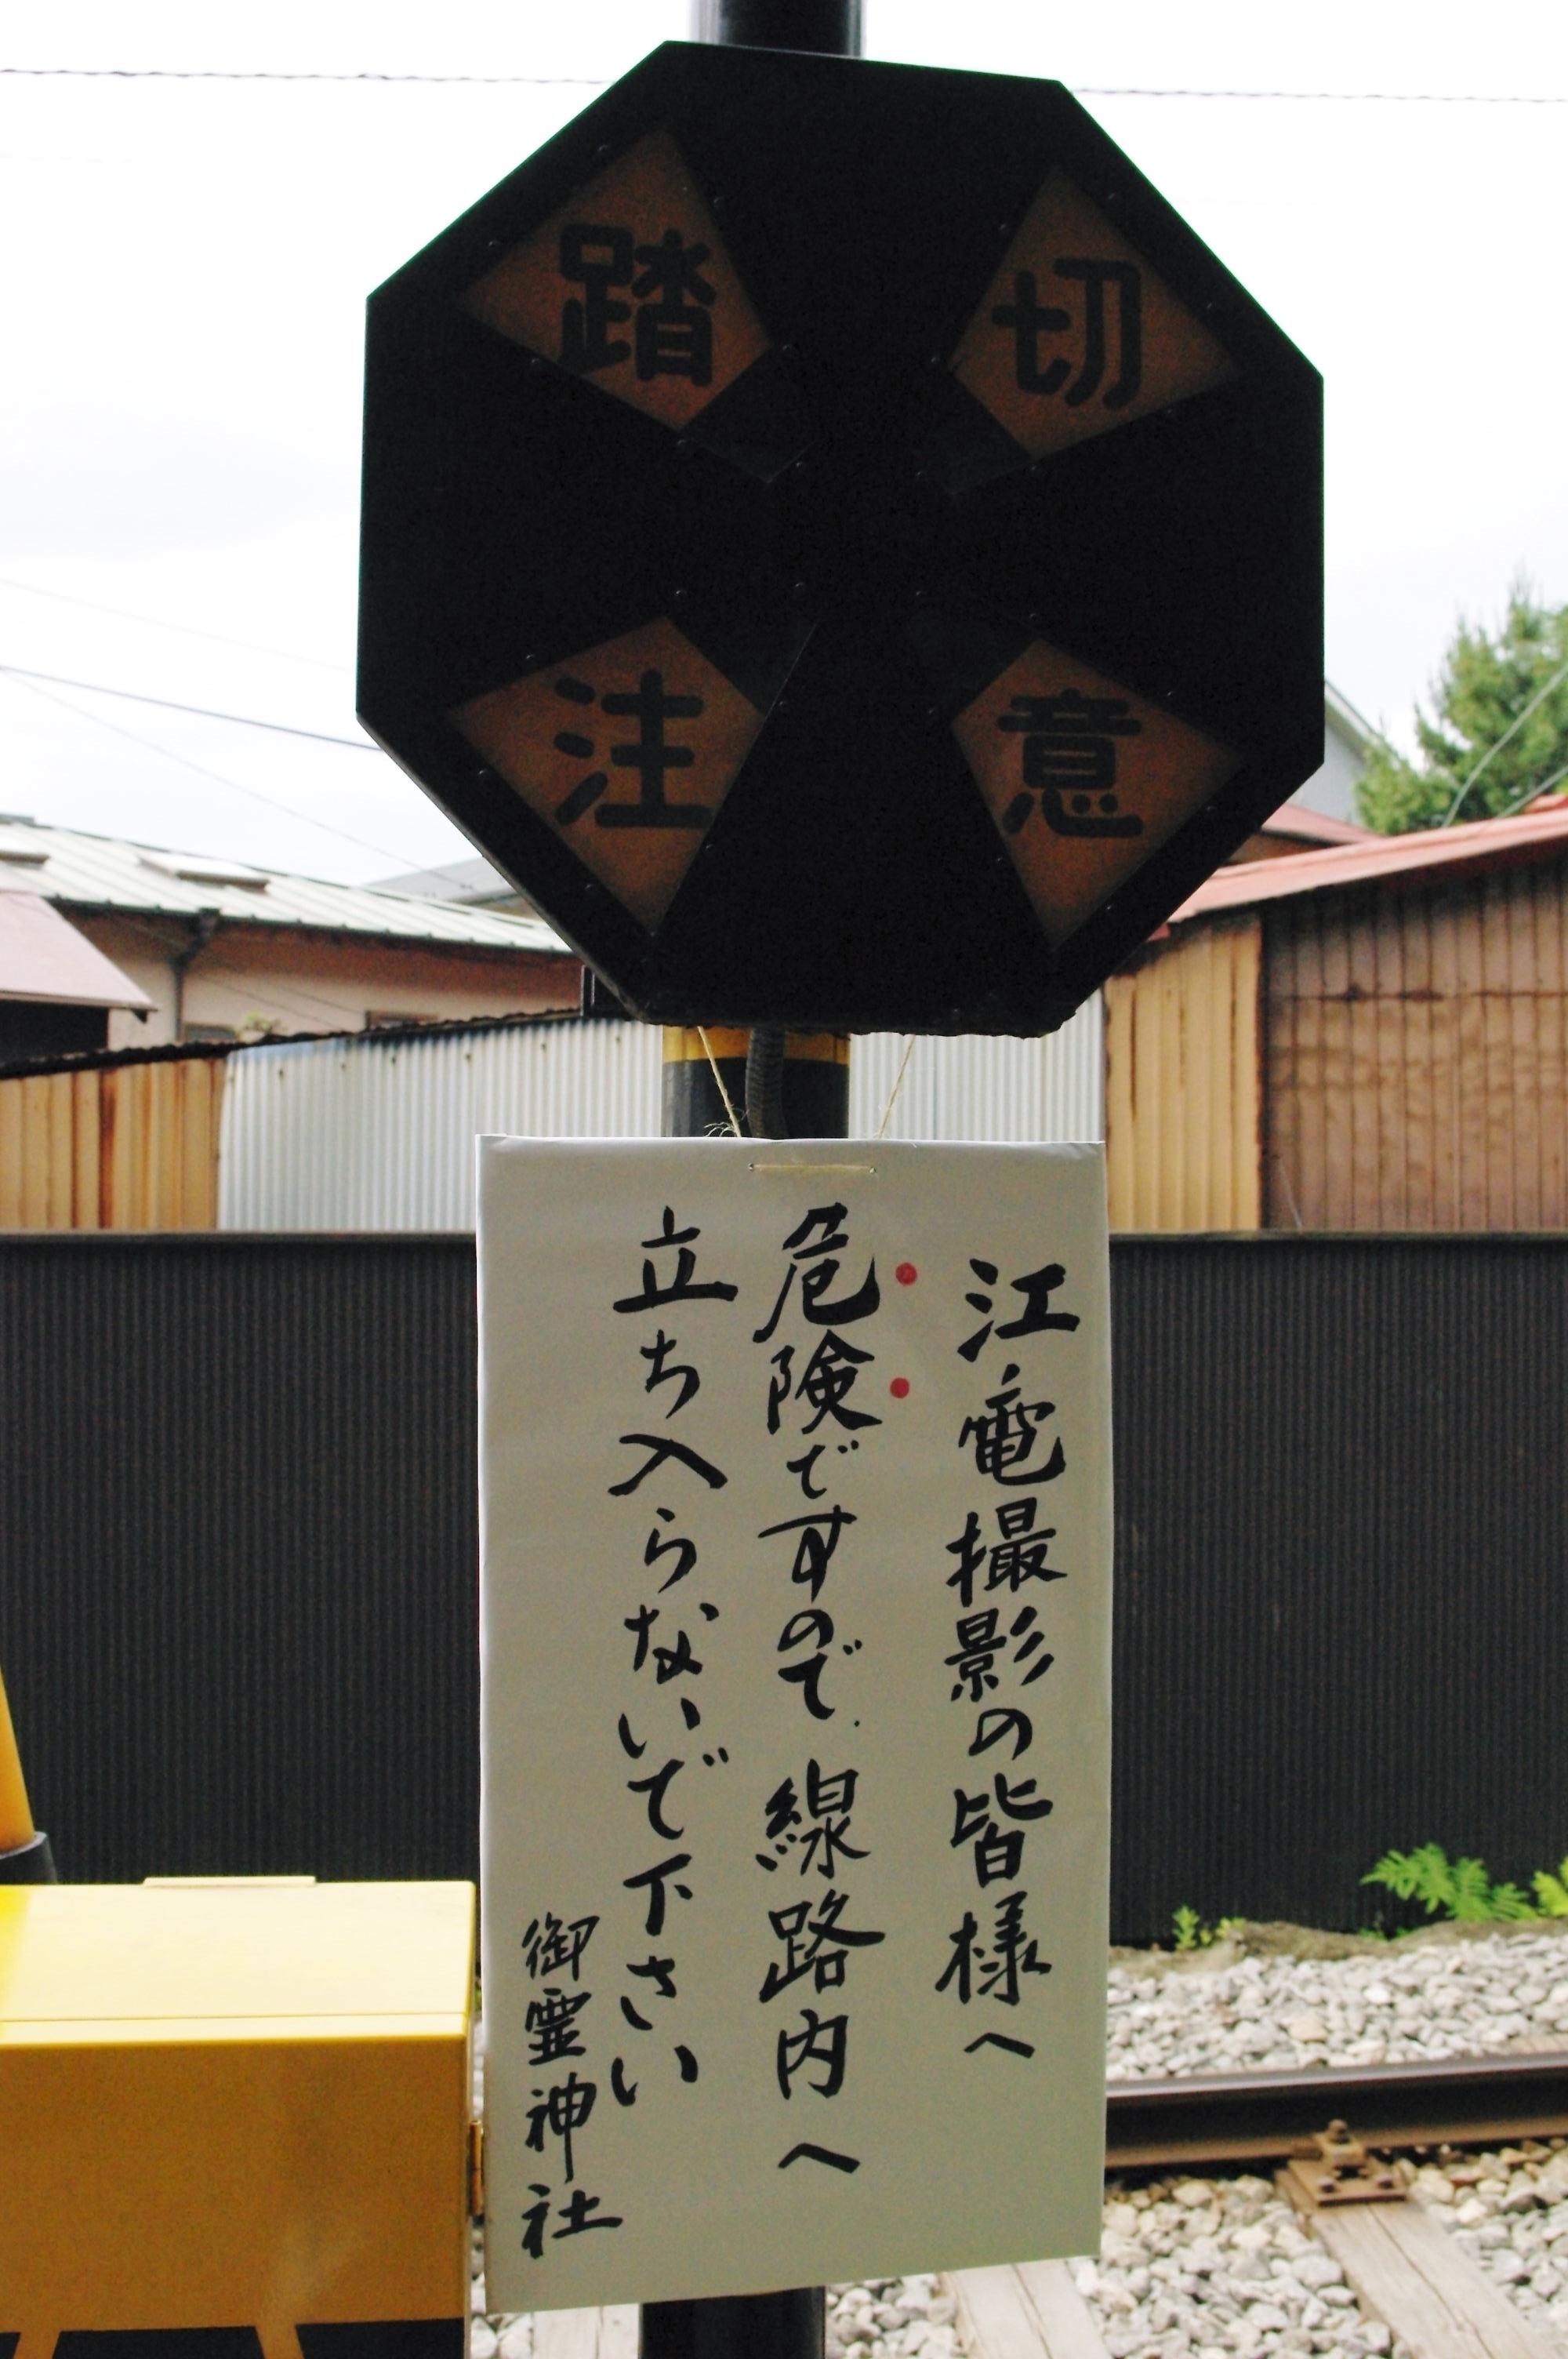 踏切
注意
江ノ電撮影の皆様へ
危険ですので、線路内へ
立ち入らないで下さい
御霊神社